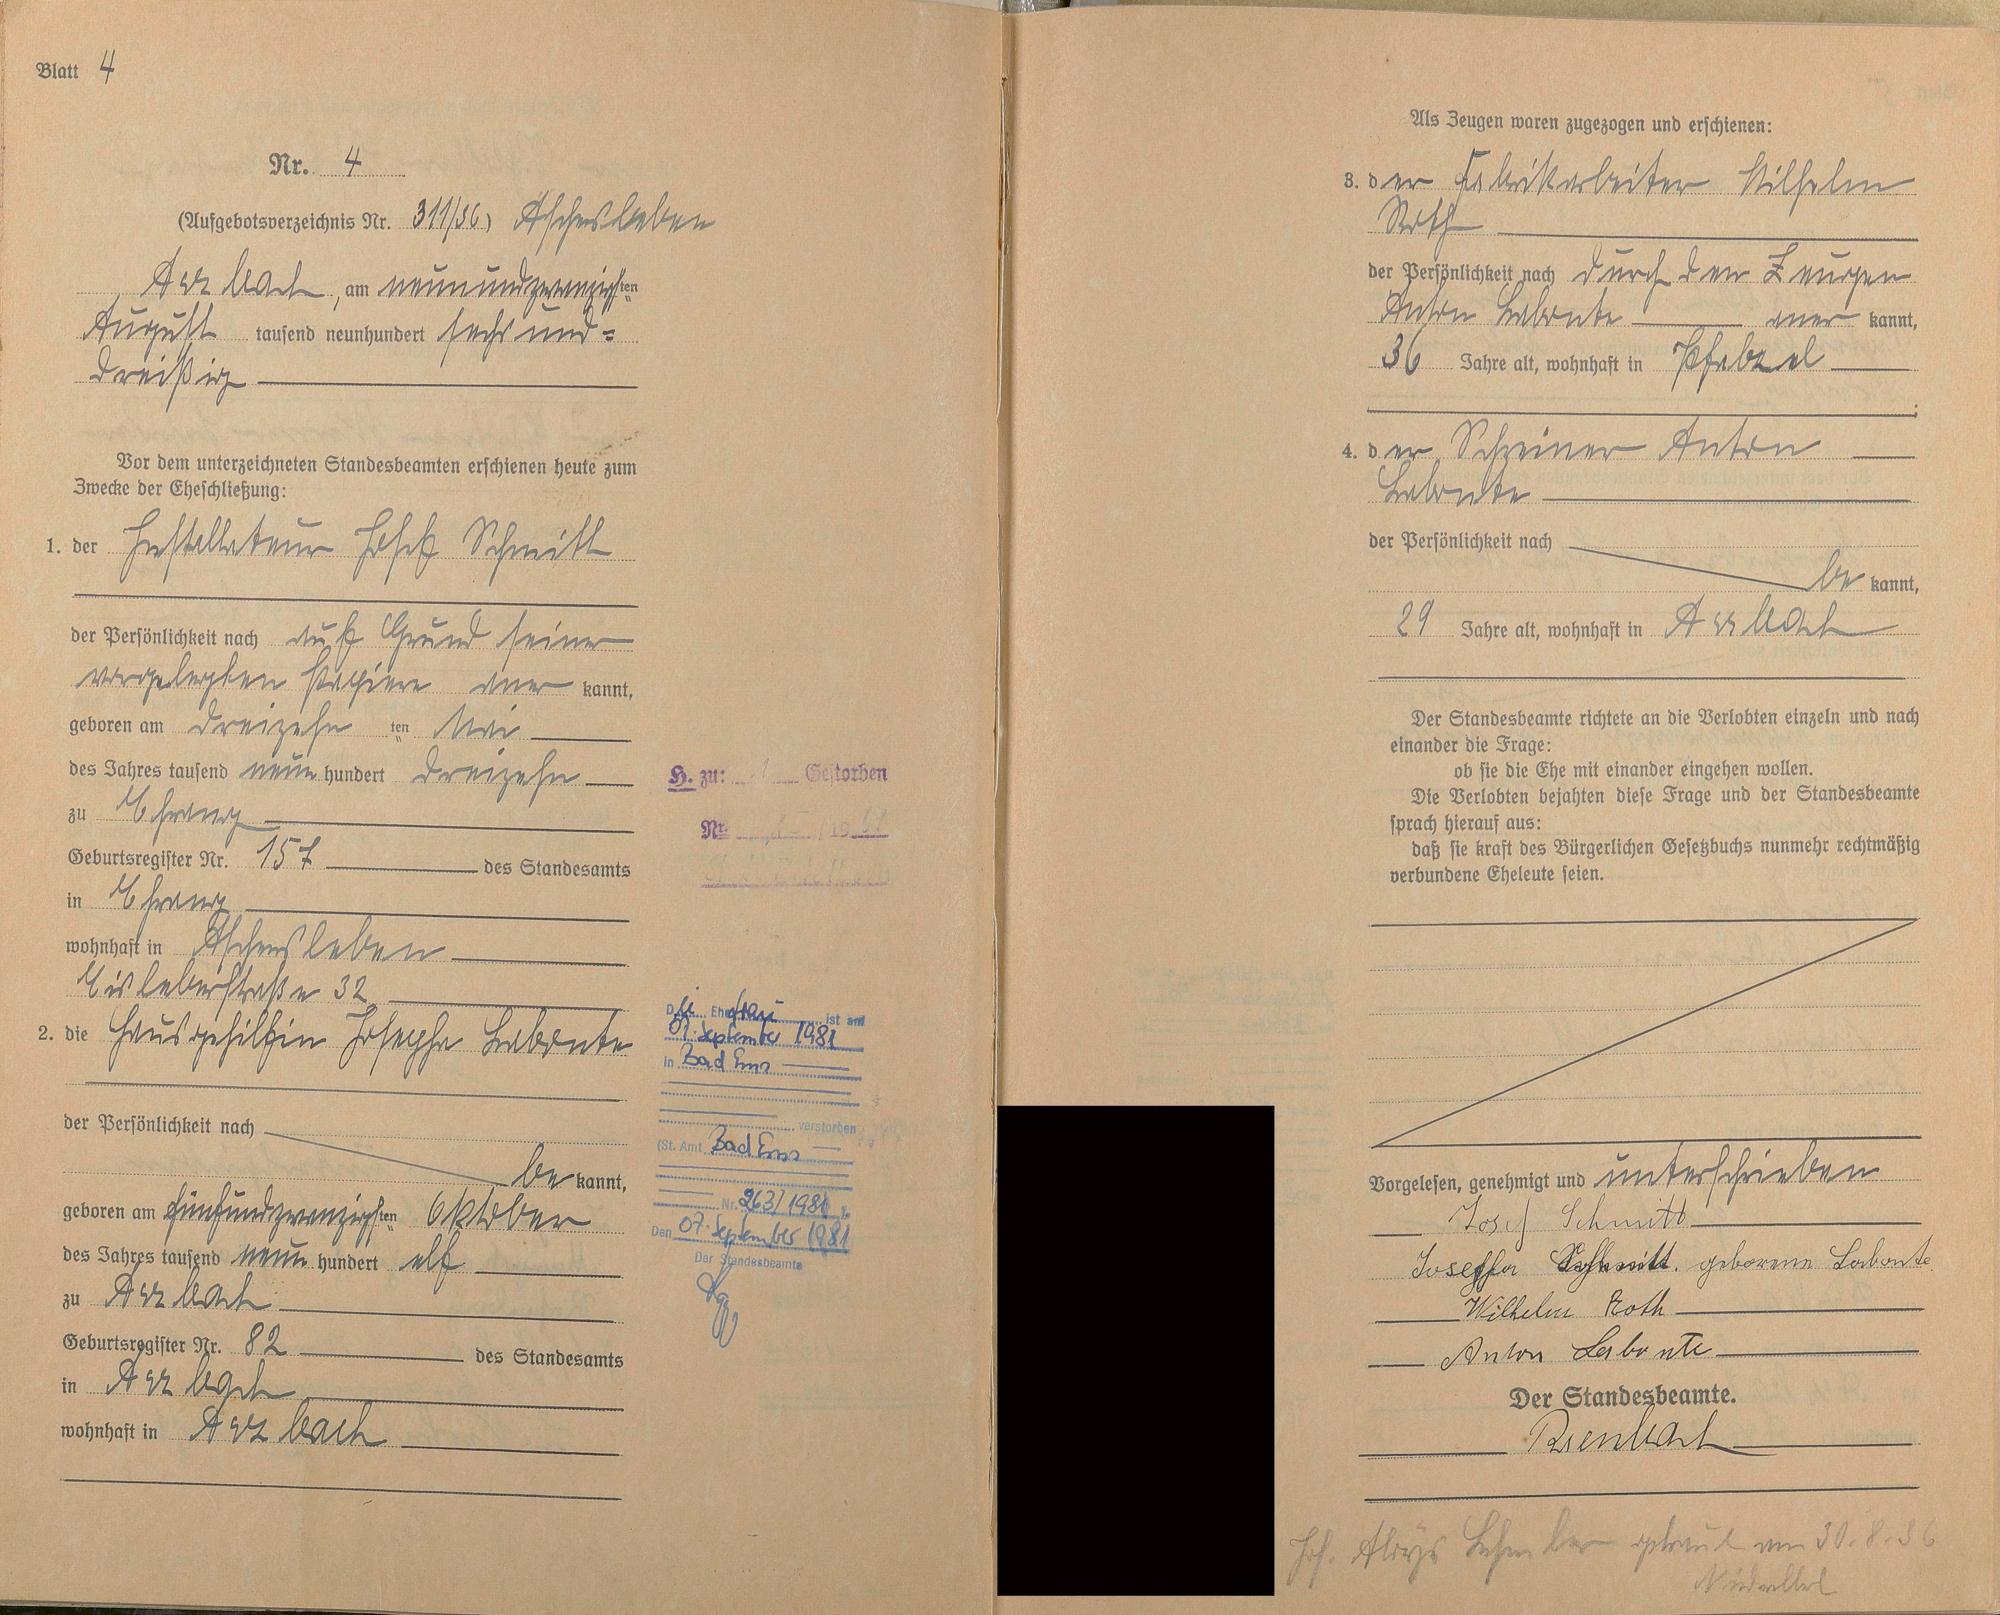 Blatt 4
Nr. 4
(Aufgebotsverzeichnis Nr. 311/36) Aschersleben
Arzbach, am neunundzwanzigsten
August tausend neunhundert sechsund=
dreißig
Vor dem unterzeichneten Standesbeamten erschienen heute zum
Zwecke der Eheschließung:
1. der Installateur Josef Schmitt
der Persönlichkeit nach auf Grund seiner
vorgelegten Papiere aner kannt,
geboren am dreizehn ten Mai
des Jahres tausend neun hundert dreizehn
zu Ehrang
Geburtsregister Nr. 157 des Standesamts
in Ehrang
wohnhaft in Aschersleben
Eisleberstraße 32
2. die Hausgehilfin Josepha Labonte
der Persönlichkeit nach
be kannt,
geboren am fünfundzwanzigsten Oktober
des Jahres tausend neun hundert elf
zu Arzbach
Geburtsregister Nr. 82 des Standesamts
in Arzbach
wohnhaft in Arzbach
H. zu: 1 Gestorben
Nr.
Die Ehefrau ist am
01. September 1981
in Bad Ems
verstorben
(St. Amt Bad Ems
Nr. 263/1981 ).
Den 07. September 1981
Der Standesbeamte
Als Zeugen waren zugezogen und erschienen:
3. der Fabrikarbeiter Wilhelm
Roth
der Persönlichkeit nach durch den Zeugen
Anton Labonte aner kannt,
36 Jahre alt, wohnhaft in Pfalzel
4. der Schreiner Anton
Labonte
der Persönlichkeit nach
be kannt,
29 Jahre alt, wohnhaft in Arzbach
Der Standesbeamte richtete an die Verlobten einzeln und nach
einander die Frage:
ob sie die Ehe mit einander eingehen wollen.
Die Verlobten bejahten diese Frage und der Standesbeamte
sprach hierauf aus:
daß sie kraft des Bürgerlichen Gesetzbuchs nunmehr rechtmäßig
verbundene Eheleute seien.
Vorgelesen, genehmigt und unterschrieben
Josef Schmitt
Joseffa Schmitt. geborene Labonte
Wilhelm Roth
Anton Labonte
Der Standesbeamte.
Joh. Aloys getraut am 30.8.36